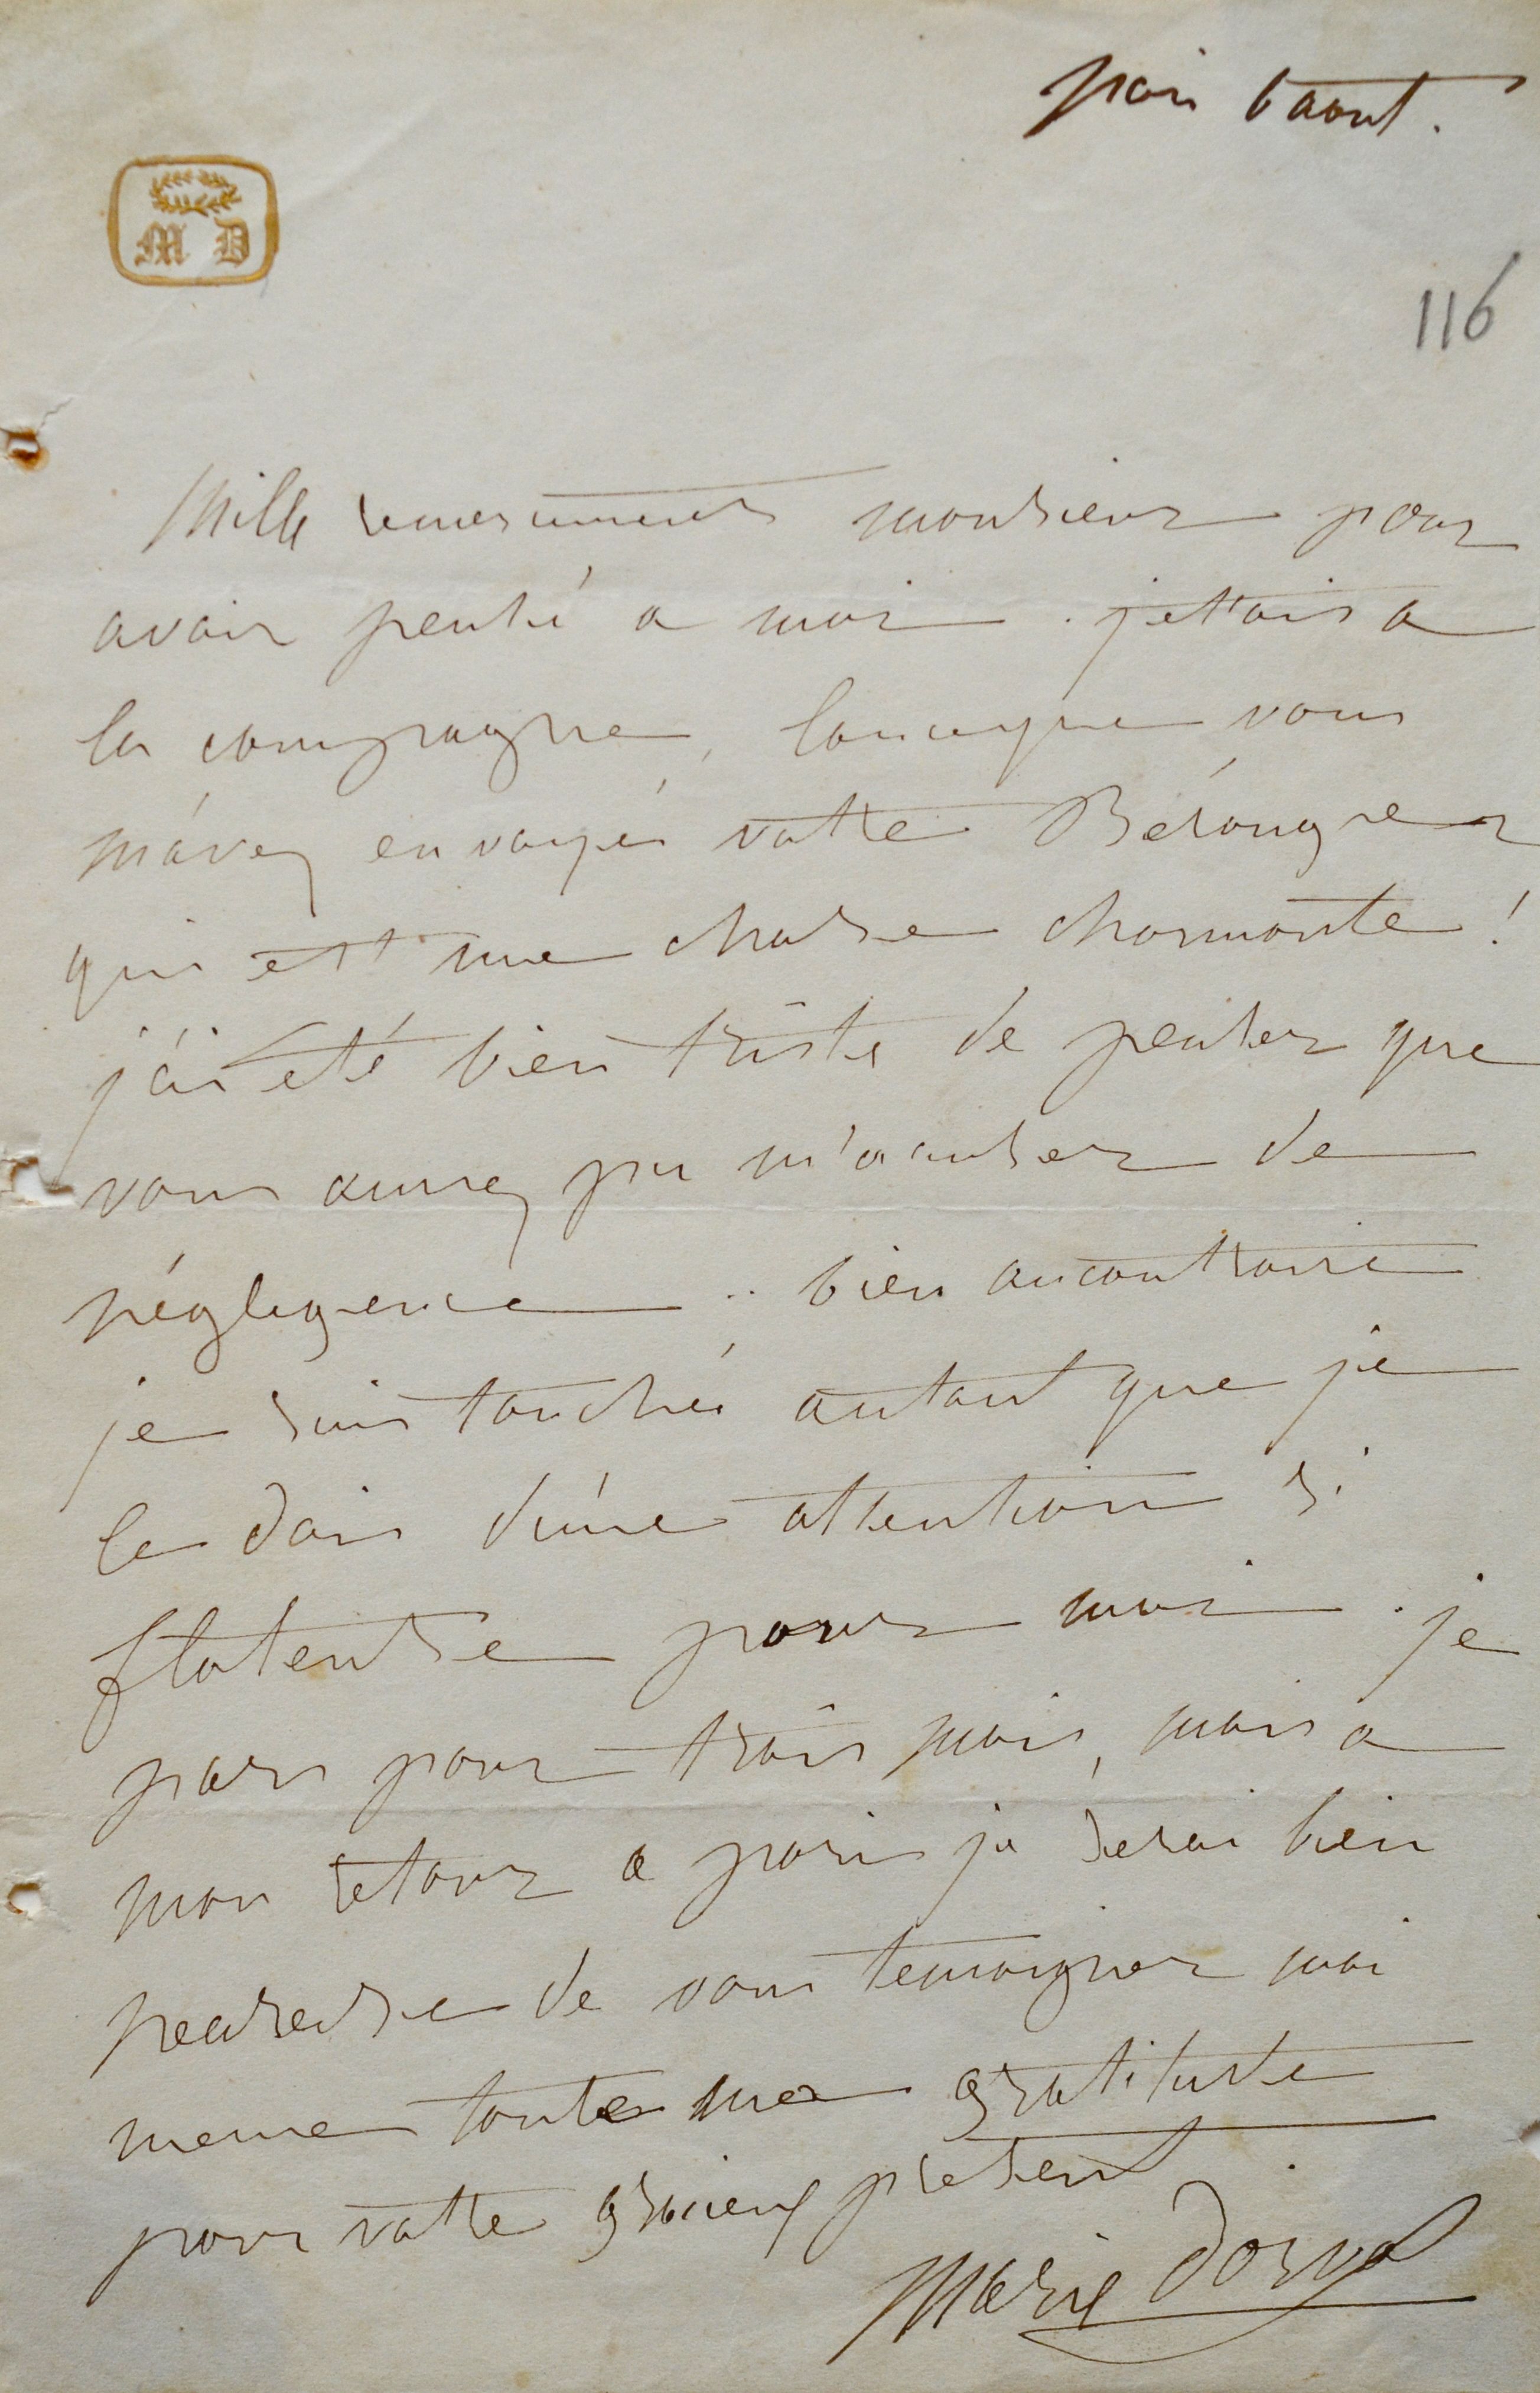 pari 6 aout.
M D
116
Mille remerciments monsieur pour
avoir pensé a moi. jettais a
la campagne, lorceque vous
m'avez envoyé votre Bérénger
qui est une chose charmante !
j'ai été bien triste de penser que
vous aurez pu m'accuser de
négligence .. bien aucontraire
je suis touchée autant que je
le dois d'une attention si
flateuse pour moi. je
pars pour trois mois, mais a
mon retour a pari je serai bien
heureuse de vous temoigner moi
meme toute ma gratitude
pour votre gracieux present
Marie Dorval